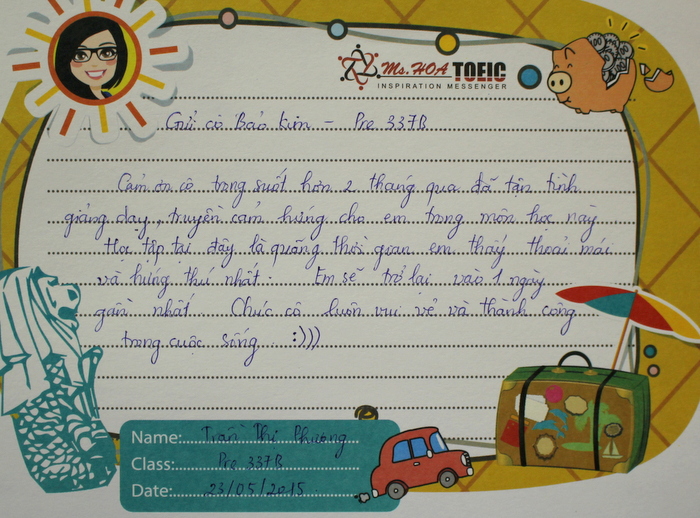 Ms. HOA TOEIC
INSPIRATION MESSENGER
Gửi cô Bảo Kim - Pre 337B
Cảm ơn cô trong suốt hơn 2 tháng qua đã tận tình
giảng dạy, truyền cảm hứng cho em trong môn học này
Học tập tại đây là quãng thời gian em thấy thoải mái
và hứng thú nhất. Em sẽ trở lại vào 1 ngày
gần nhất Chúc cô luôn vui vẻ và thành công
trong cuộc sống :)))
Name: Trần Thị Phương
Class: Pre 337B
Date: 23/05/2015